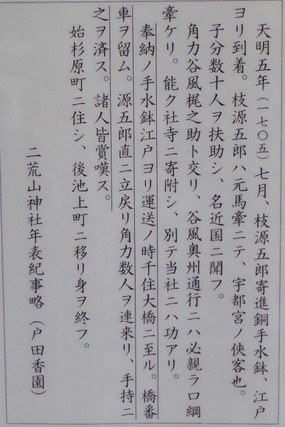 天明五年(一七〇五)七月、枝源五郎寄進銅手水鉢、江戸
ヨリ到着。枝源五郎ハ元馬牽ニテ、宇都宮ノ侠客也。
子分数十人ヲ扶助シ、名近国ニ聞フ。
角力谷風梶之助ト交リ、谷風奥州通行ニハ必親ラ口綱
牽ケリ。能ク社寺ニ寄附シ、別テ当社ニハ功アリ。
奉納ノ手水鉢江戸ヨリ運送ノ時千住大橋ニ至ル。橋番
車ヲ留ム。源五郎直ニ立戻リ角力数人ヲ連来リ、手持ニ
之ヲ済ス。諸人皆賞嘆ス。
始杉原町ニ住シ、後池上町ニ移リ身ヲ終フ。
二荒山神社年表紀事略(戸田香園)